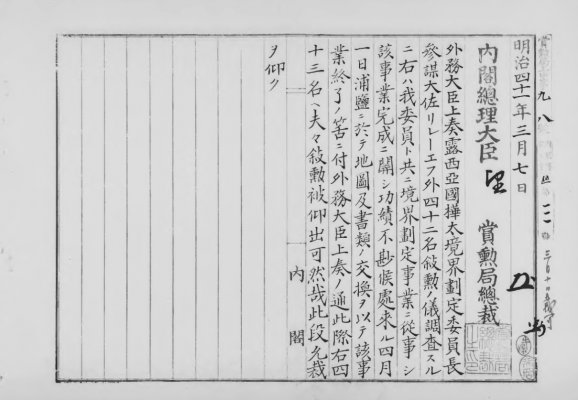 九八
明治四十一年三月七日
内閣總理大臣
賞勲局總裁
外務大臣上奏露西亞國樺太境界劃定委員長
參謀大佐リレーエフ外四十二名敍勲ノ儀調査スル
ニ右ハ我委員ト共ニ境界劃定事業ニ從事シ
該事業完成ニ關シ功績不尠候處來ル四月
一日浦鹽ニ於テ地圖及書類ノ交換ヲ以テ該事
業終了ノ筈ニ付外務大臣上奏ノ通此際右四
十三名ヘ夫々敍勲被仰出可然哉此段允裁
ヲ仰ク
内閣